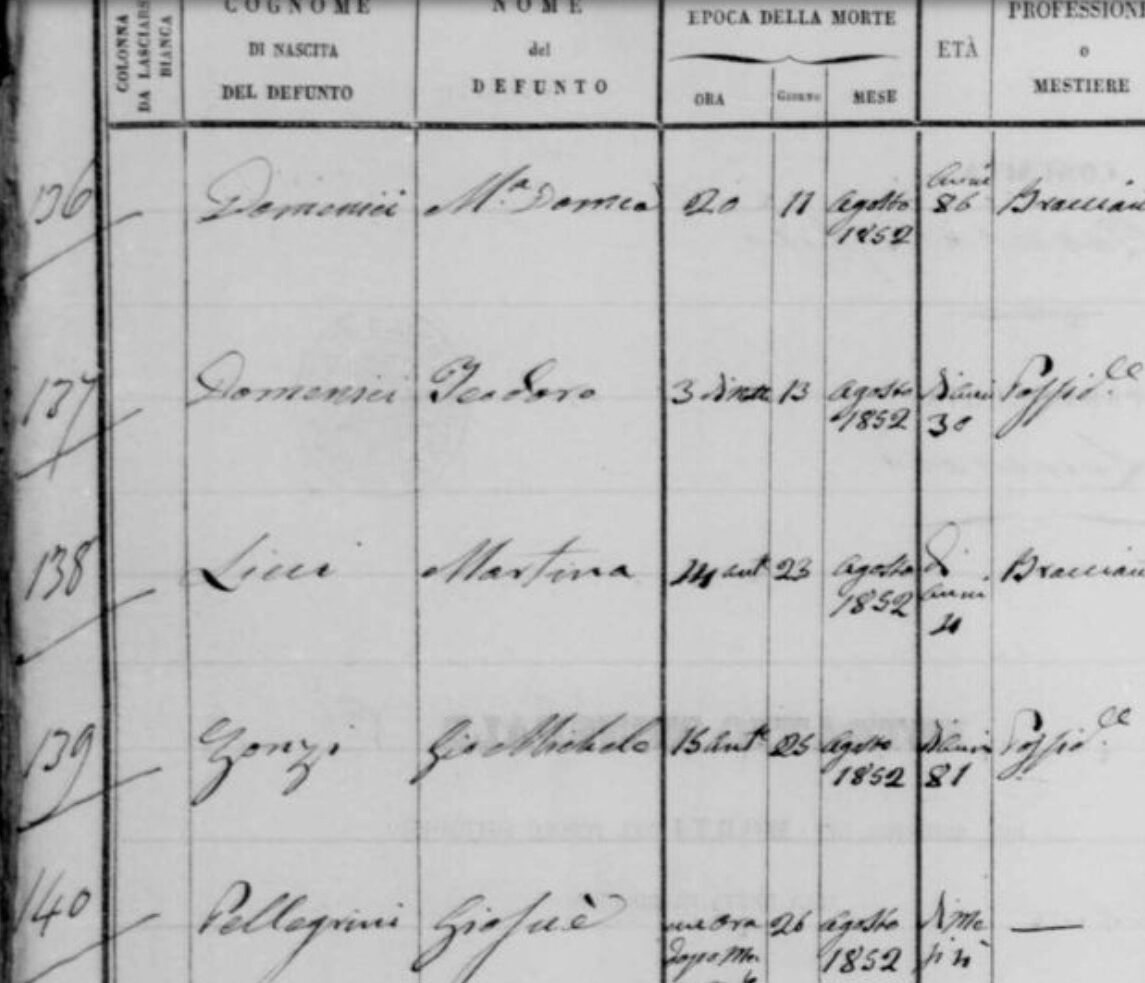 COLONNA
DA LASCIARSI
BIANCA
COGNOME
DI NASCITA
DEL DEFUNTO
NOME
del
DEFUNTO
EPOCA DELLA MORTE
ORA
GIORNO
MESE
ETÀ
PROFESSIONE
o
MESTIERE
136 Domenici Mª Domca 20 11 Agosto Anni Braccian
1852 86
137 Domenici Teodoro 3 13 Agosto Possid.
1852 30
138 Licci Martina ant 23 Agosto Di Braccian
1852 anni
139 Zonzi Gio Michele 15 ant 25 Agosto Possid.
1852 81
140 Pellegrini Giosuè un ora 26 Agosto di Me —
dopo 1852 si